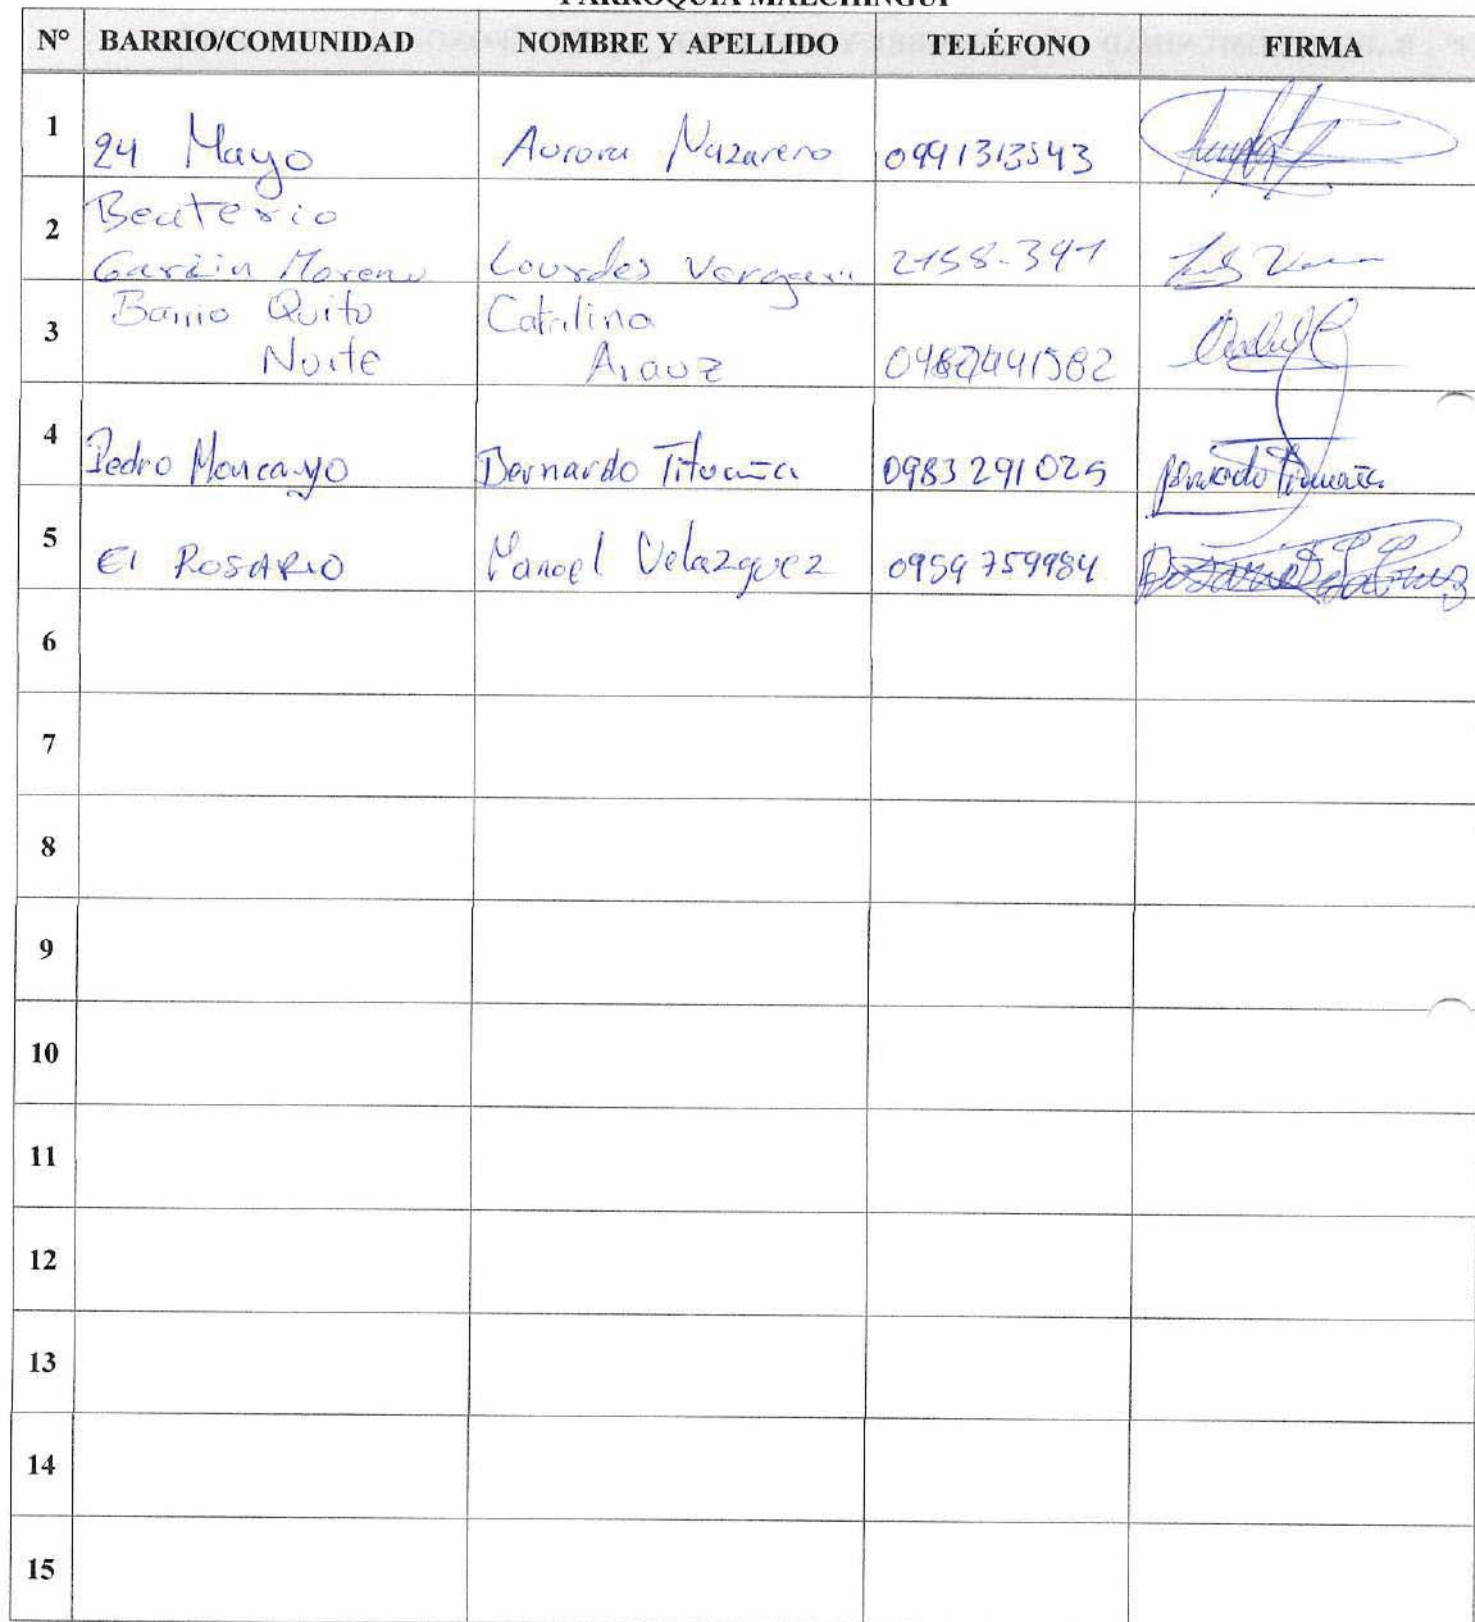 PARROQUIA MALCHINGUI
N° BARRIO/COMUNIDAD NOMBRE Y APELLIDO TELÉFONO FIRMA
1 24 Mayo Aurora Nazareno 0991313543
2 Beaterio
Garzin Moreno Lourdes Vergara 2158-391
3 Barrio Quito Catalina
Norte Arauz
4 Pedro Moncayo Bernardo Tituaña 0983291025 Bernardo Tituaña
5 El ROSARIO Manoel Velazquez 0959759984
6
7
8
9
10
11
12
13
14
15